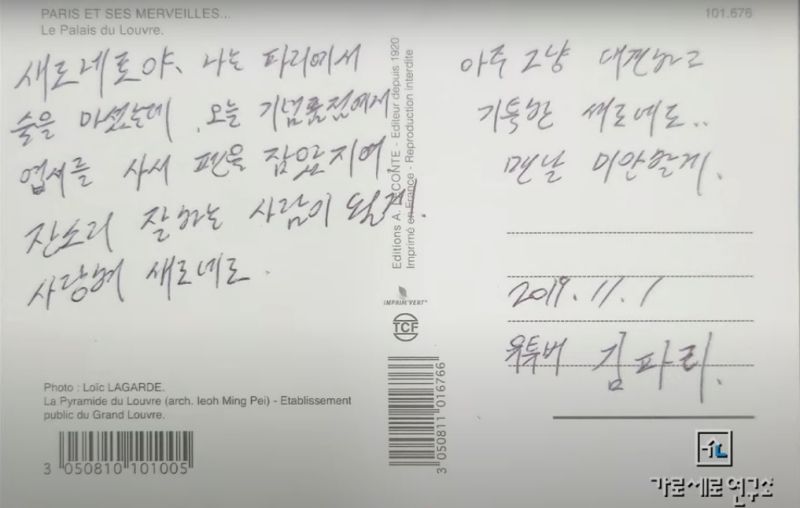 PARIS ET SES MERVEILLES...
Le Palais du Louvre.
101.676
새로네로야. 나는 파리에서
술을 마셨는데 .오늘 기념품점에게
엽서를 사서 펜을 잡았지여.
잔소리 잘하는 사람이 될게!
사랑해 새로네로.
아주 그냥 대견하고
기특한 새로네로..
맨날 미안할게.
2019.11.1
유투버 김파리.
Editions A. LECONTE - Editeur depuis 1920
Imprimé en France - Reproduction interdite
IMPRIM'VERT®
TCF
3 050811 016766
Photo : Loïc LAGARDE.
La Pyramide du Louvre (arch. Ieoh Ming Pei) - Etablissement
public du Grand Louvre.
3 050810 101005
가로세로연구소